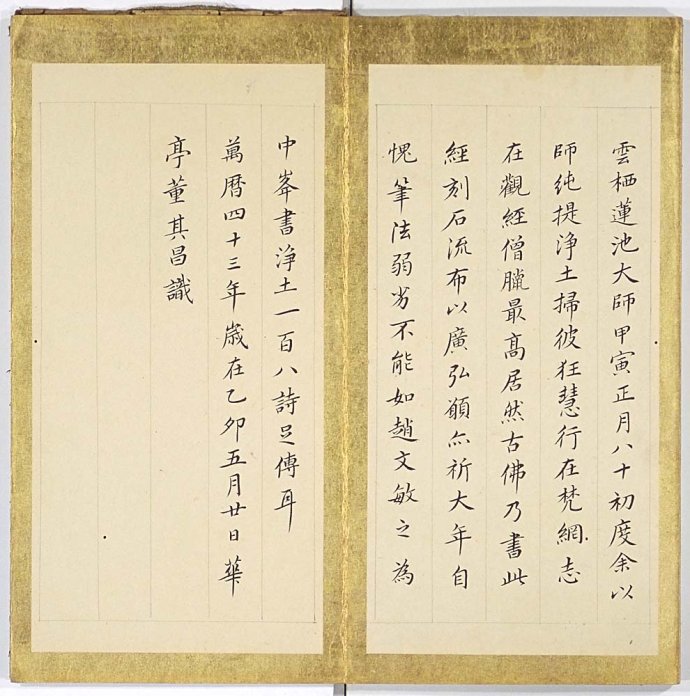 雲栖蓮池大師甲寅正月八十初度余以
師純提浄土掃彼狂慧行在梵網志
在觀經僧臘最高居然古佛乃書此
經刻石流布以廣弘願亦祈大年自
愧筆法弱劣不能如趙文敏之為
中峯書浄土一百八詩足傳耳
萬曆四十三年歲在乙卯五月廿日華
亭董其昌識